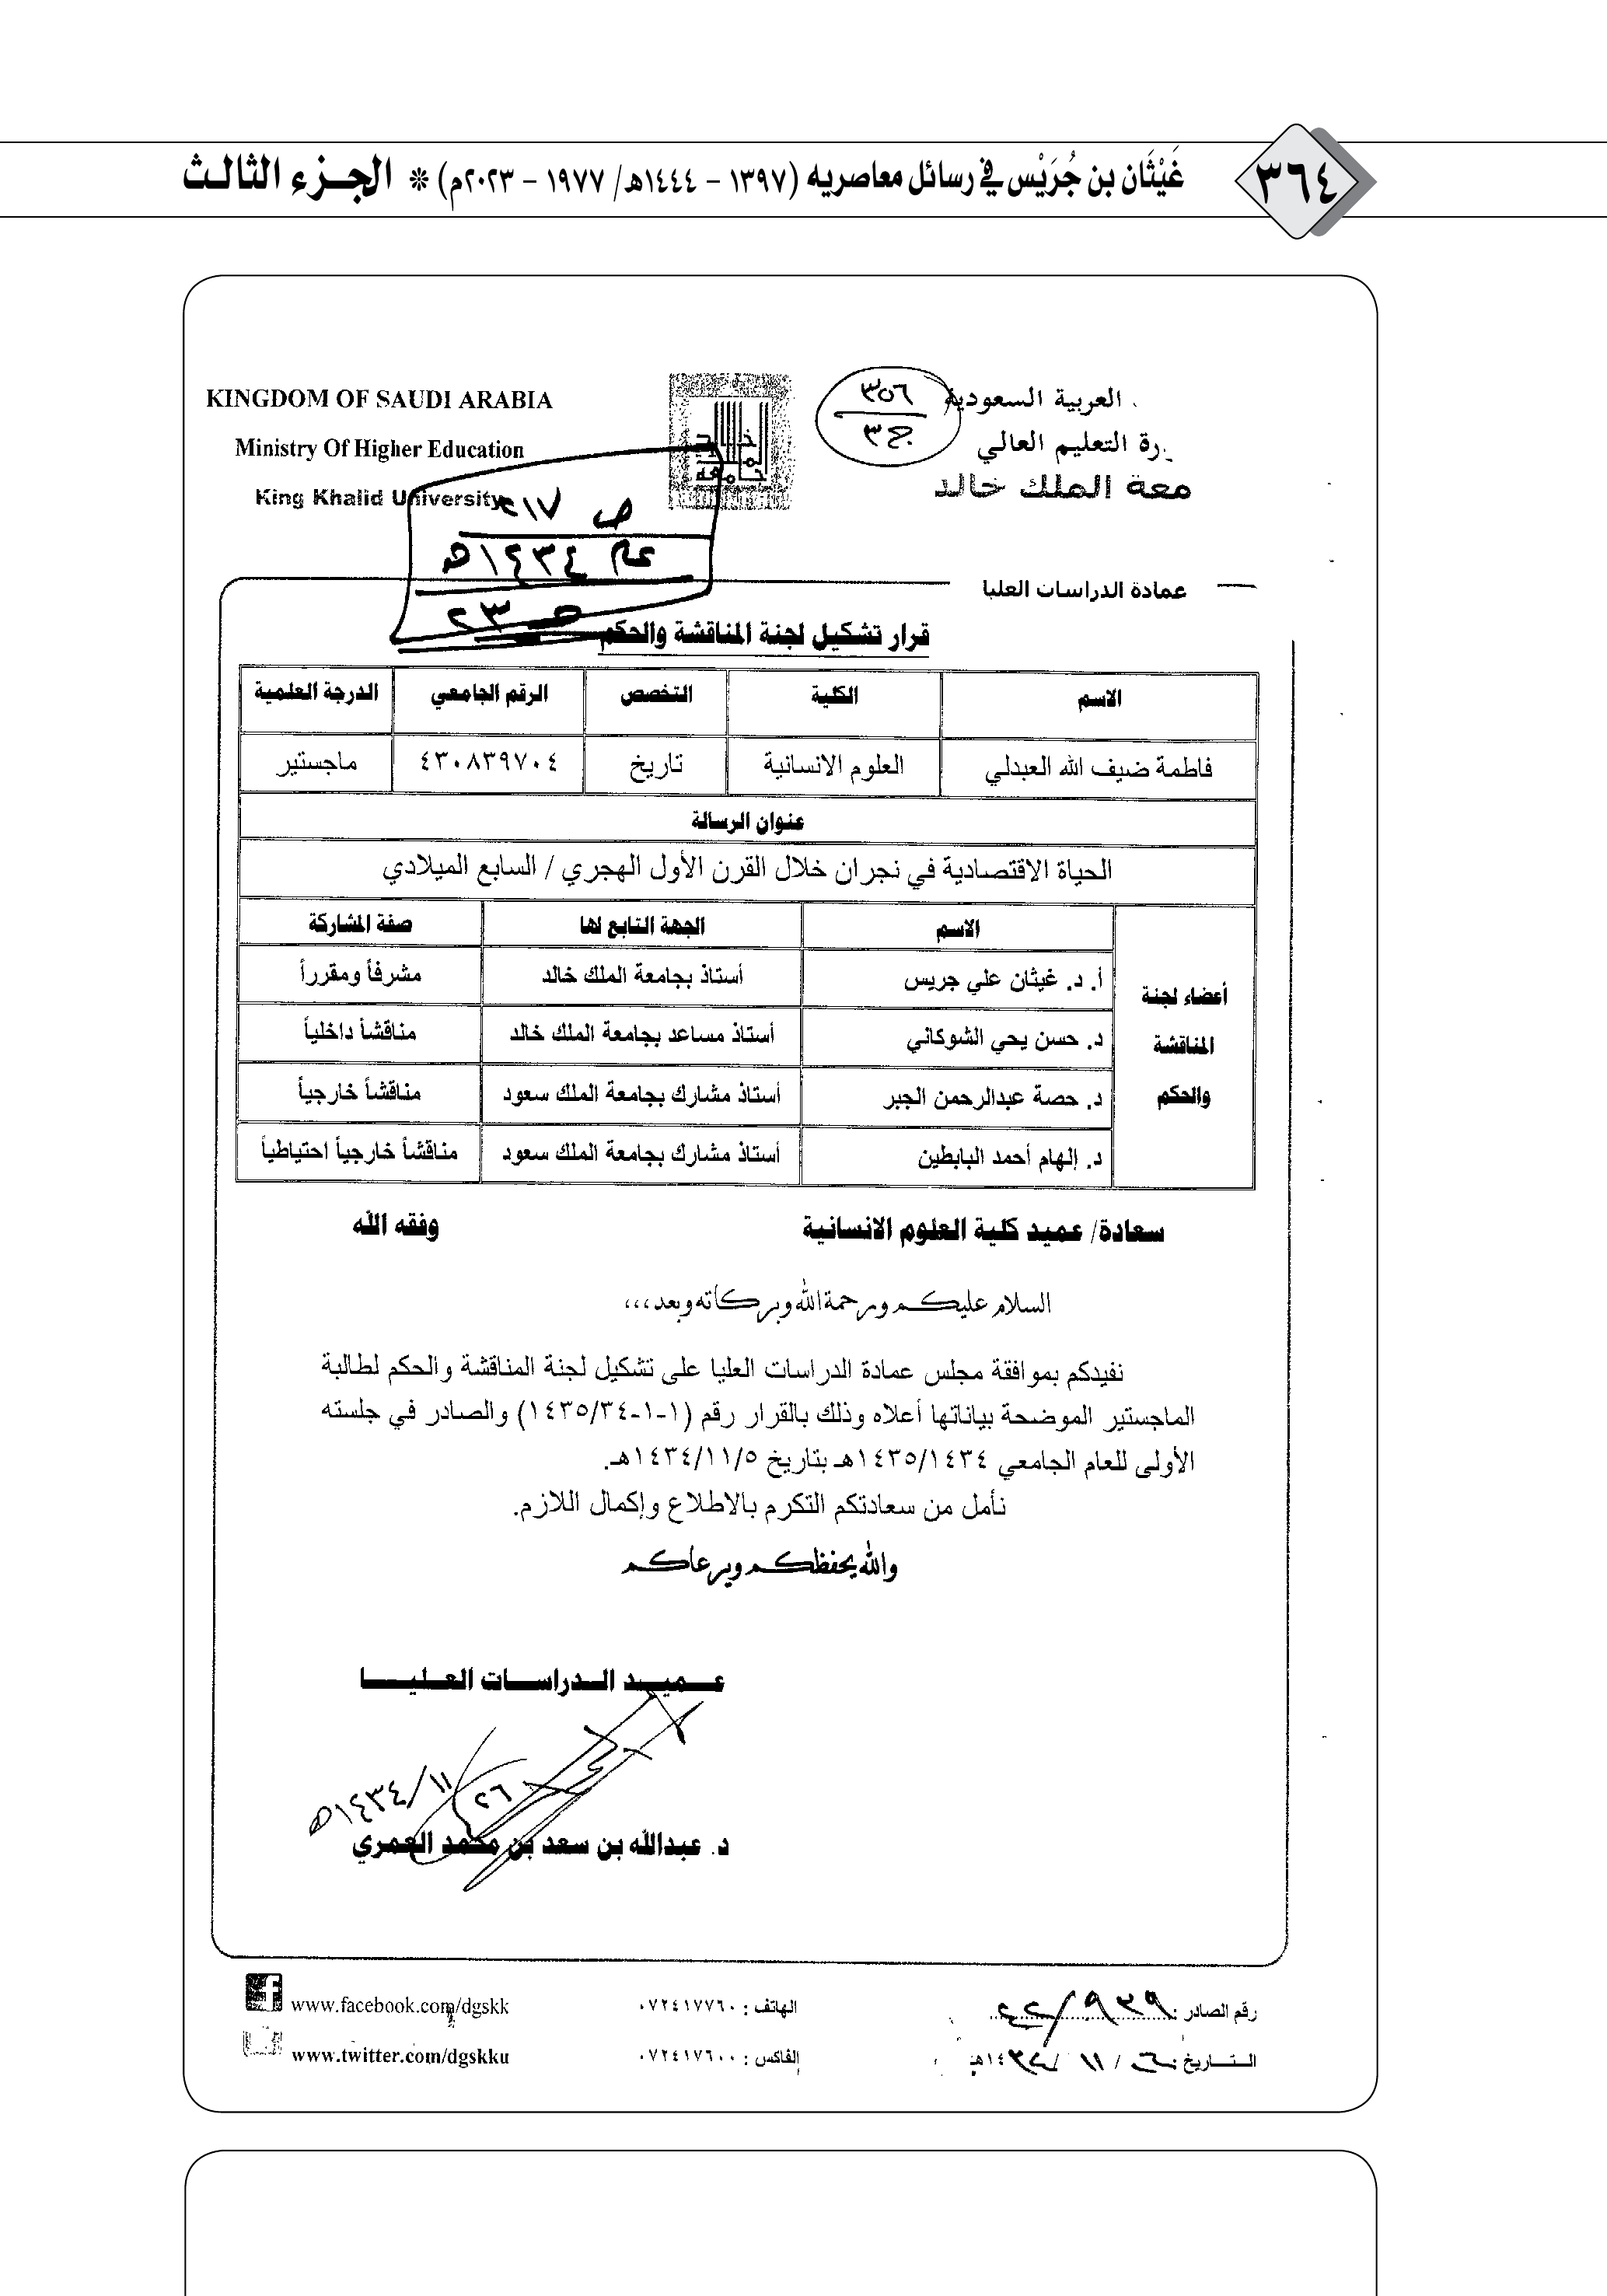 ٣٦٤
غَيْثَان بن جُرَيْس في رسائل معاصريه (١٣٩٧ - ١٤٤٤هـ/ ١٩٧٧ - ٢٠٢٣م) * الجـزء الثالث
KINGDOM OF SAUDI ARABIA
Ministry Of Higher Education
King Khalid University
العربية السعودية
رة التعليم العالي
معة الملك خالد
٣٥٦
ج٣
ص ٢١٧
عام ١٤٣٤هـ
عمادة الدراسات العليا
قرار تشكيل لجنة المناقشة والحكم
الاسم الكلية التخصص الرقم الجامعي الدرجة العلمية
فاطمة ضيف الله العبدلي العلوم الانسانية تاريخ ٤٣٠٨٣٩٧٠٤ ماجستير
عنوان الرسالة
الحياة الاقتصادية في نجران خلال القرن الأول الهجري / السابع الميلادي
أعضاء لجنة
المناقشة
والحكم
الاسم الجهة التابع لها صفة المشاركة
أ. د. غيثان علي جريس أستاذ بجامعة الملك خالد مشرفاً ومقرراً
د. حسن يحي الشوكاني أستاذ مساعد بجامعة الملك خالد مناقشاً داخلياً
د. حصة عبدالرحمن الجبر أستاذ مشارك بجامعة الملك سعود مناقشاً خارجياً
د. إلهام أحمد البابطين أستاذ مشارك بجامعة الملك سعود مناقشاً خارجياً احتياطياً
سعادة/ عميد كلية العلوم الانسانية وفقه الله
السلام عليكم ورحمة الله وبركاته وبعد،،،
نفيدكم بموافقة مجلس عمادة الدراسات العليا على تشكيل لجنة المناقشة والحكم لطالبة
الماجستير الموضحة بياناتها أعلاه وذلك بالقرار رقم (١-١-١٤٣٥/٣٤) والصادر في جلسته
الأولى للعام الجامعي ١٤٣٥/١٤٣٤هـ بتاريخ ١٤٣٤/١١/٥هـ.
نأمل من سعادتكم التكرم بالاطلاع وإكمال اللازم.
والله يحفظكم ويرعاكم
عـــميـــد الـــدراســـات العـــليـــا
٢٦/١١/١٤٣٤هـ
د. عبدالله بن سعد بن محمد العمري
رقم الصادر :
التـــاريخ :
الهاتف : ٠٧٢٤١٧٧٦٠
الفاكس : ٠٧٢٤١٧٦٠٠
www.facebook.com/dgskk
www.twitter.com/dgskku